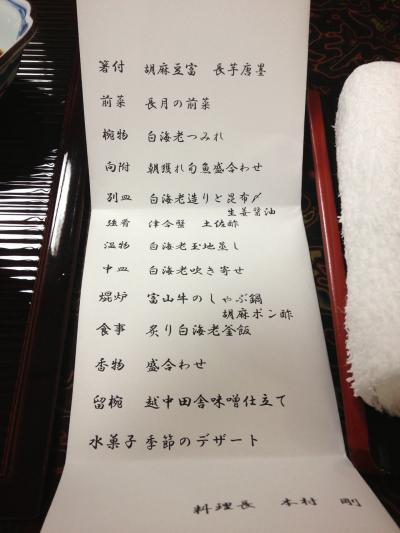 箸付 胡麻豆富 長芋唐墨
前菜 長月の前菜
椀物 白海老つみれ
向附 朝獲れ旬魚盛合わせ
別皿 白海老造りと昆布〆
生姜醤油
強肴 津合蟹 土佐酢
温物 白海老玉地蒸し
中皿 白海老吹き寄せ
焜炉 富山牛のしゃぶ鍋
胡麻ポン酢
食事 炙り白海老釜飯
香物 盛合わせ
留椀 越中田舎味噌仕立て
水菓子 季節のデザート
料理長 木村 剛